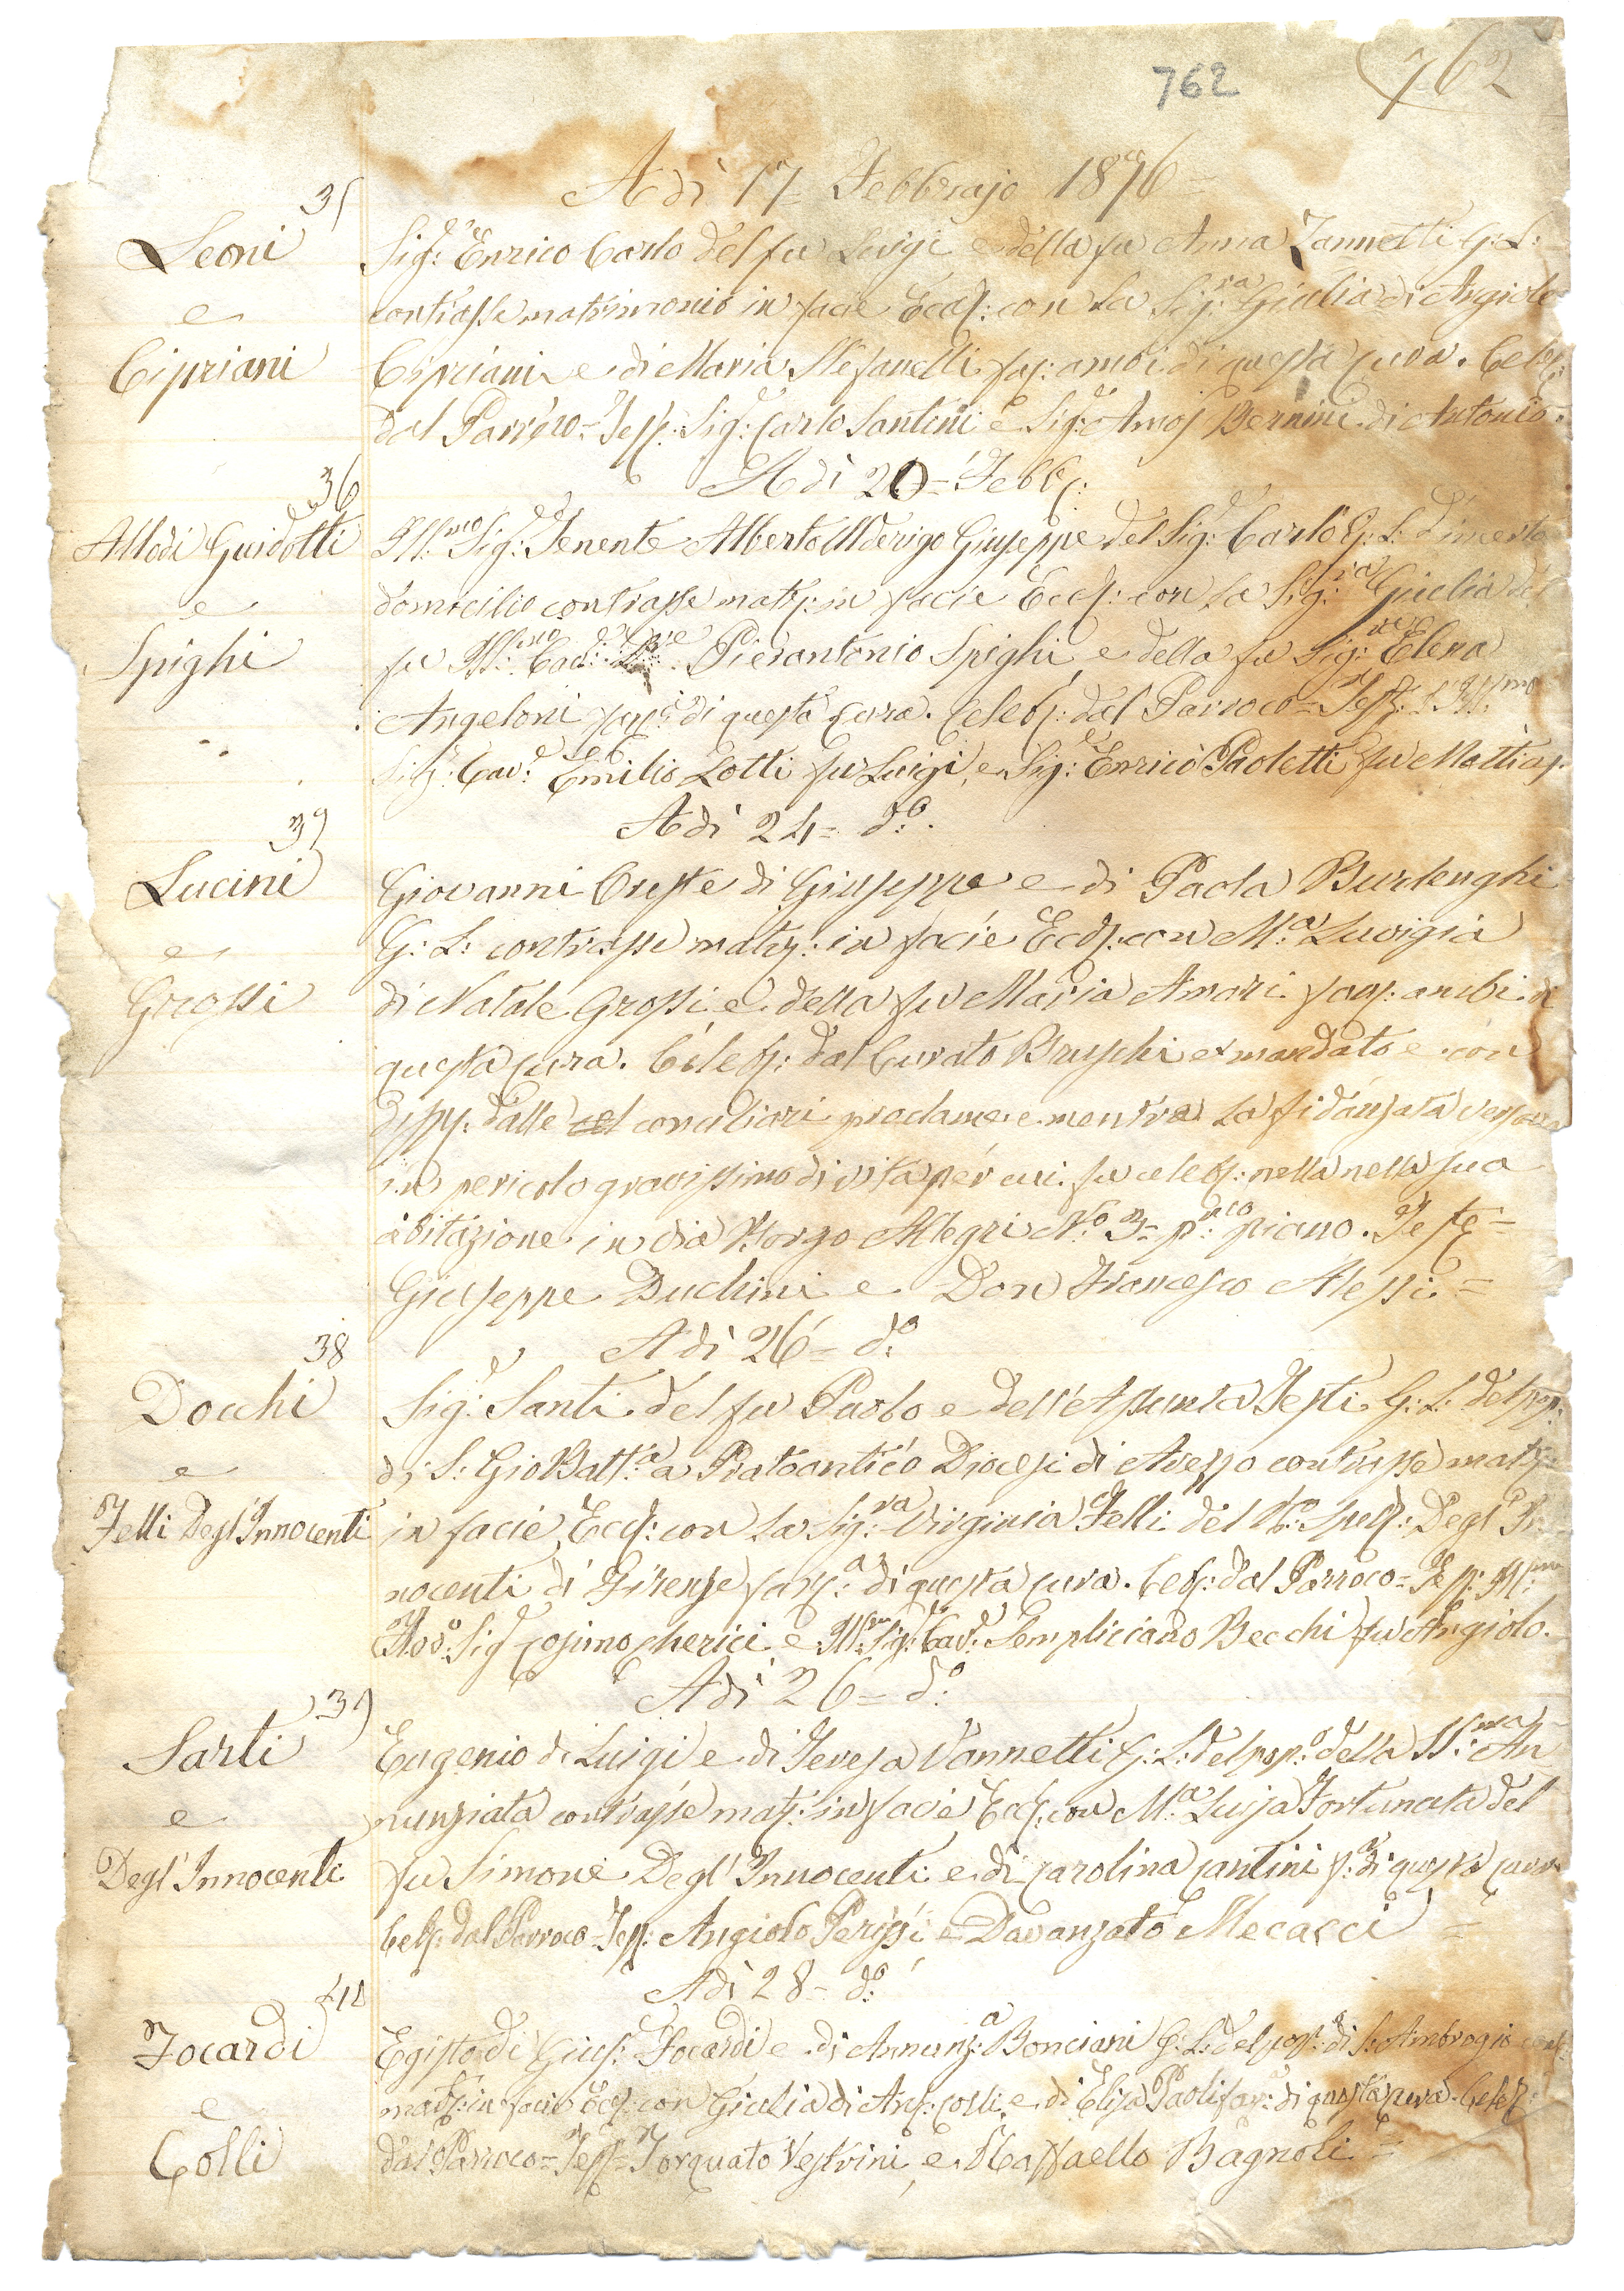 762
762
Adì 17= Febbrajo 1876=
35
Leoni
e
Cipriani
Sig:r Enrico Carlo del fu Luigi e della fu Anna Zannetti G: L:
contrasse matrimonio in facie Eccl: con la Sig:ra Giulia di Angiolo
Cipriani e di Maria Stefanelli fag: ambi di questa cura. Celeb:
dal Parroco= Tess: Sig:r Carlo Santini e Sig:r Amos Bernini di Antonio.
Adì 20= Febb:
36
Allodi Guidotti
e
Spighi
Ill:mo Sig:r Tenente Alberto Alderigo Giuseppe del Sig:r Carlo G: L: d'incerto
domicilio contrasse matr: in facie Eccl: con la Sig:ra Giulia del
fu Ill:mo Cav: Pierantonio Spighi e della fu Sig:ra Elena
Angeloni di questa Cura. Celeb: dal Parroco= Test: l'Ill:mo
Sig:r Cav:e Emilio Lotti fu Luigi, e Sig:r Enrico Paoletti fu Mattias.
Adì 24= d:o
37
Lucini
e
Grossi
Giovanni Oreste di Giuseppe e di Paola Burlenghi
G: L: contrasse matr: in facie Eccl: con M:a Luvigia
di Natale Grossi e della fu Maria Amari fag: ambi di
questa cura. Celeb: dal Curato Bruschi ex mandato e con
disp: dalle conciliari proclame e mentre la fidanzata versava
in pericolo gravissimo di vita per cui fu celeb: nella nella sua
abitazione in via Borgo Allegri N:o 3= p:mo piano. Teste=
Giuseppe Duchini e Don Francesco Alessi=
Adì 26= d:o
38
Docchi
e
Felli Degl'Innocenti
Sig:r Santi del fu Paolo e dell'Assunta Testi G: L: del pop:
di S: Gio Batt:a a Pratoantico Diocesi di Arezzo contrasse matr:
in facie Eccl: con la Sig:ra Virginia Felli del R:o Sped: Degl'In
nocenti di Firenze di questa cura. Celeb: dal Parroco= Tess: Ill:mo
Rev:o Sig:r Cosimo Cherici e Ill:mo Sig:r Cav:e Sempliciano Becchi fu Angiolo.
Adì 26= d:o
39
Sarti
e
Degl'Innocenti
Eugenio di Luigi e di Teresa Vannetti G: L: del pop:o della SS:ma An
nunziata contrasse matr: in facie Eccl: con M:a Luisa Fortunata del
fu Simone Degl'Innocenti e di Carolina Cantini f: di questa cura
Celeb: dal Parroco= Tess: Angiolo Perissi e Davanzato Mecacci=
Adì 28= d:o
40
Focardi
e
Colli
Egisto di Gius: Focardi e di Annunz:a Bonciani G: L: del pop: di S: Ambrogio cont:
matr: in facie Eccl: con Giulia di Ang: Colli e di Elisa Paoli fag: di questa cura. Celeb:
dal Parroco= Tess= Torquato Vestrini e Raffaello Bagnoli=